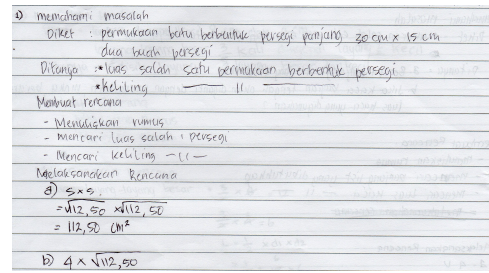 1) memahami masalah
Diket : permukaan batu berbentuk persegi panjang 30 cm x 15 cm
dua buah persegi
Ditanya : * luas salah satu permukaan berbentuk persegi
* keliling —— 11 ——
Membuat rencana
- Menuliskan rumus
- Mencari luas salah 1 persegi
- Mencari keliling —11—
Melaksanakan Rencana
a) s x s
= √112,50 x √112,50
= 112,50 cm²
b) 4 x √112,50